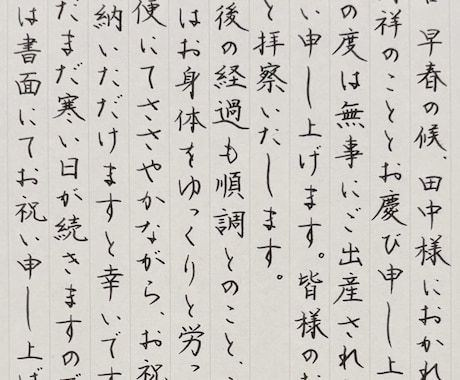 早春の候、田中様におかれ
祥のこととお慶び申し上
の度は無事にご出産され
い申し上げます。皆様のお
と拝察いたします。
後の経過も順調とのこと、
はお身体をゆっくりと労っ
便にてささやかながら、お祝
納いただけますと幸いです
だまだ寒い日が続きますので
は書面にてお祝い申し上げ